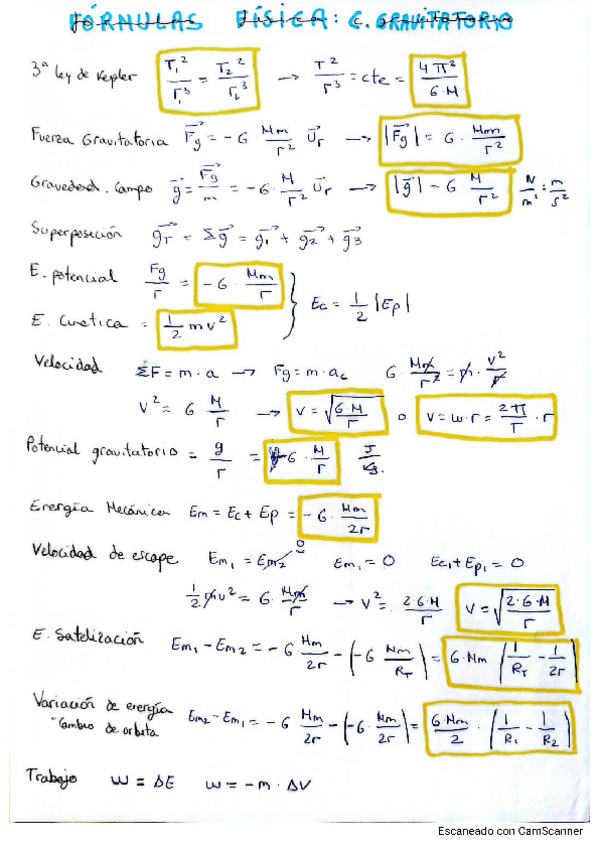 FÓRMULAS FÍSICA: C. GRAVITATORIO
3ª ley de Kepler T₁²/r₁³ = T₂²/r₂³ → T²/r³ = cte = 4π²/G·M
Fuerza Gravitatoria F⃗g = -G Mm/r² u⃗r → |F⃗g| = G · Mm/r²
Gravedad. Campo g⃗ = F⃗g/m = -G · M/r² u⃗r → |g⃗| = G M/r² N/m' : m/s²
Superposición g⃗T = Σg⃗ = g⃗₁ + g⃗₂ + g⃗₃
E. potencial Fg/r = -G · Mm/r
Ec = 1/2 |Ep|
E. Cinetica = 1/2 mv²
Velocidad ΣF = m · a → Fg = m · ac G · Mm/r² = m · v²/r
V² = G M/r → v = √(G·M/r) o v = w·r = 2π/T · r
Potencial gravitatorio = g/r = G · M/r J/Kg.
Energía Mecánica Em = Ec + Ep = -G · Mm/2r
Velocidad de escape Em₁ = Em₂ 0 Em₁ = 0 Ec₁ + Ep₁ = 0
1/2 mv² = G · Mm/r → v² = 2·G·M/r v = √(2·G·M/r)
E. Satelización Em₁ - Em₂ = -G Mm/2r - (-G Mm/RT) = G·Mm (1/RT - 1/2r)
Variación de energía
"Cambio de orbita Em₂ - Em₁ = -G Mm/2r - (-G· Mm/2r) = G·Mm/2 · (1/R₁ - 1/R₂)
Trabajo W = ΔE W = -m · ΔV
Escaneado con CamScanner